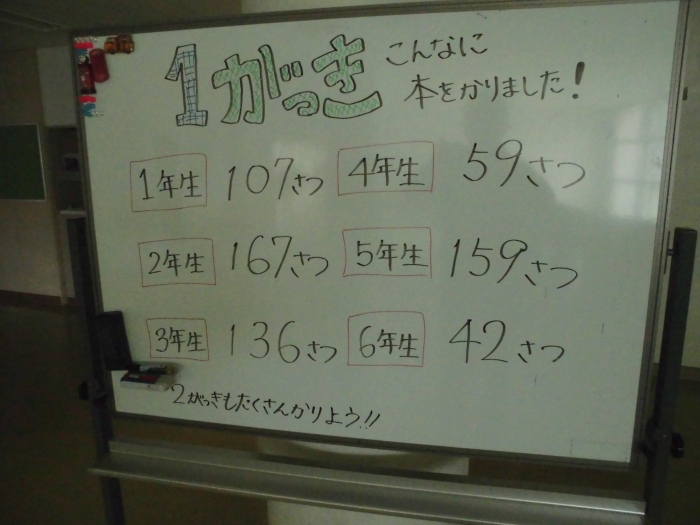 1がっき こんなに
本をかりました!
1年生 107さつ 4年生 59さつ
2年生 167さつ 5年生 159さつ
3年生 136さつ 6年生 42さつ
2がっきもたくさんかりよう!!